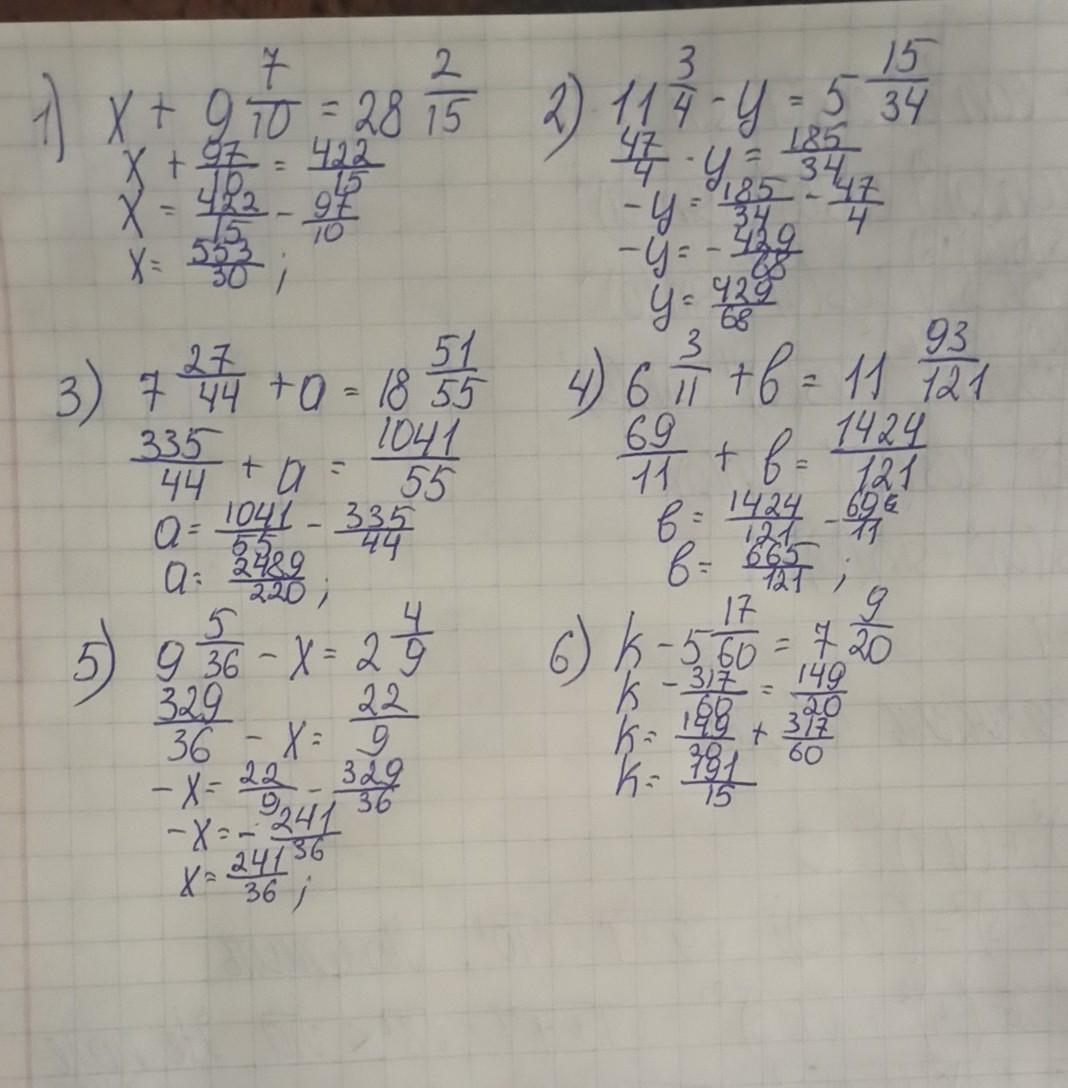 1) x + 9 7/10 = 28 2/15
x + 97/10 = 422/15
x = 422/15 - 97/10
x = 553/30 ;
2) 11 3/4 - y = 5 15/34
47/4 - y = 185/34
-y = 185/34 - 47/4
-y = - 429/68
y = 429/68
3) 7 27/44 + a = 18 51/55
335/44 + a = 1041/55
a = 1041/55 - 335/44
a = 2489/220 ;
4) 6 3/11 + в = 11 93/121
69/11 + в = 1424/121
в = 1424/121 - 69/11
в = 665/121 ;
5) 9 5/36 - x = 2 4/9
329/36 - x = 22/9
-x = 22/9 - 329/36
-x = - 241/36
x = 241/36 ;
6) k - 5 17/60 = 7 9/20
k - 317/60 = 149/20
k = 149/20 + 317/60
k = 191/15